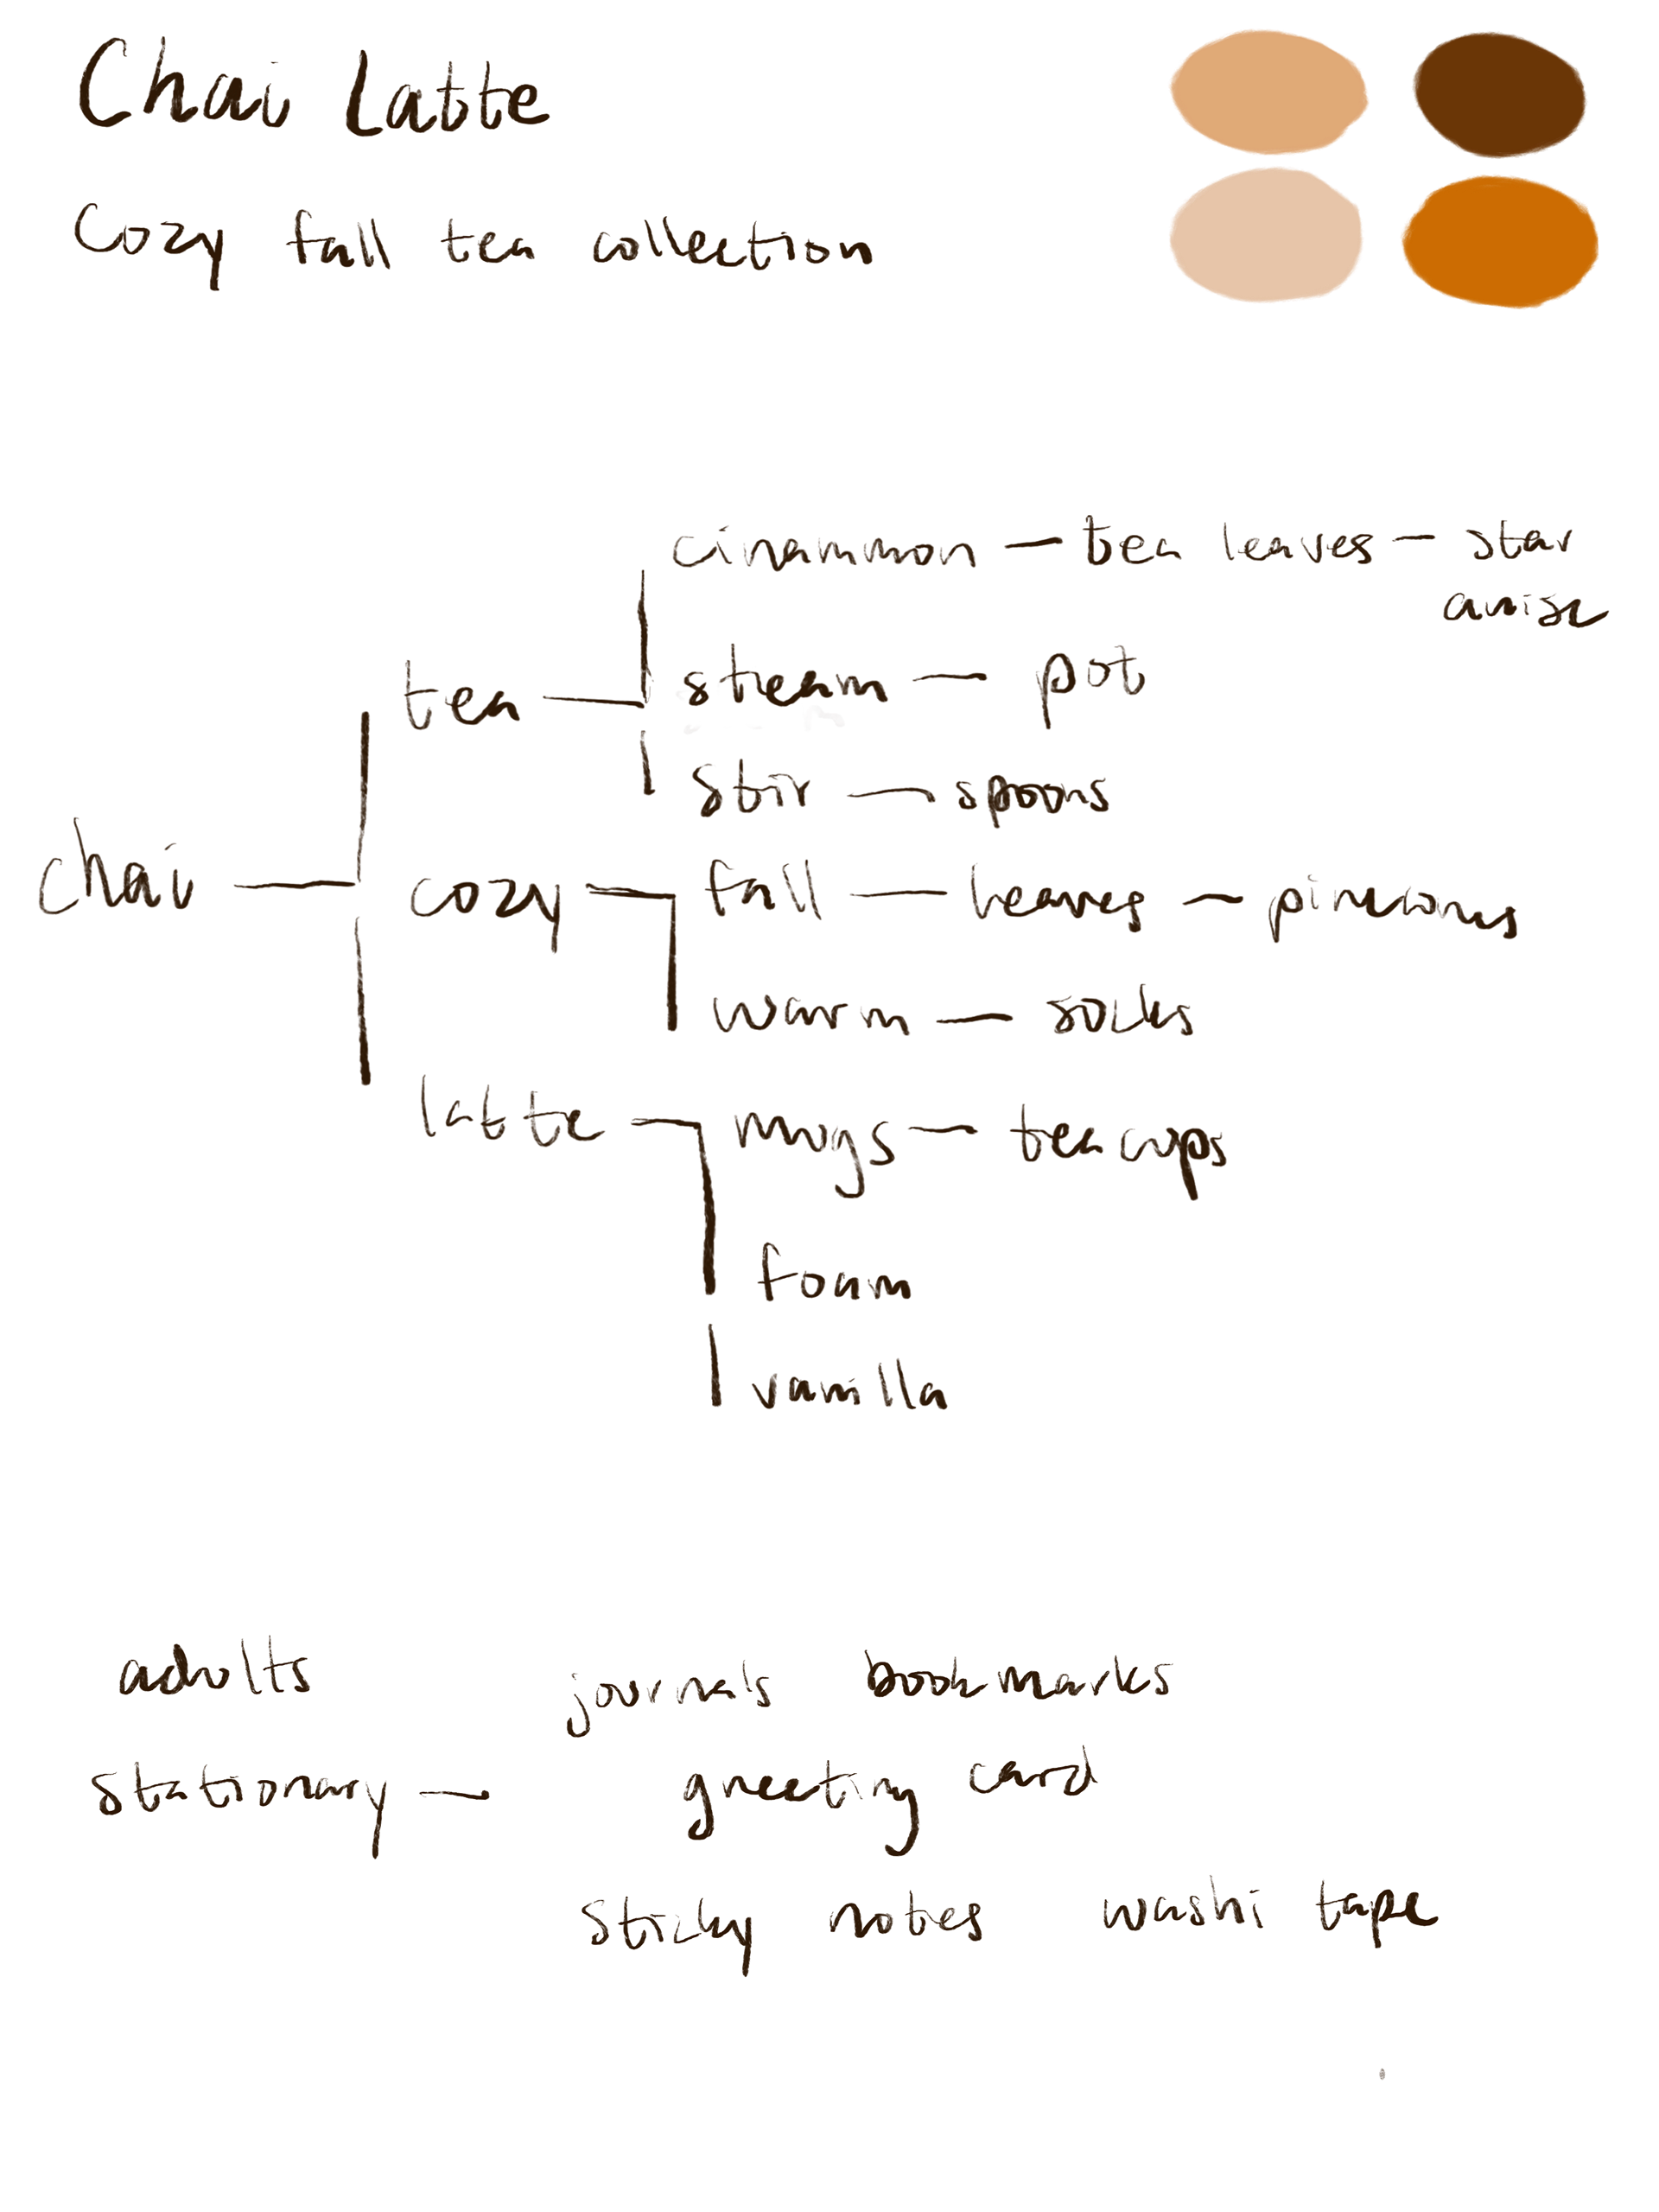 Chai Latte
Cozy fall tea collection
cinammon — tea leaves — star
anise
tea — steam — pot
stir — spoons
chai — cozy — fall — leaves — pinecones
warm — socks
latte — mugs — tea cups
foam
vanilla
adults journals bookmarks
stationary — greeting card
sticky notes washi tape